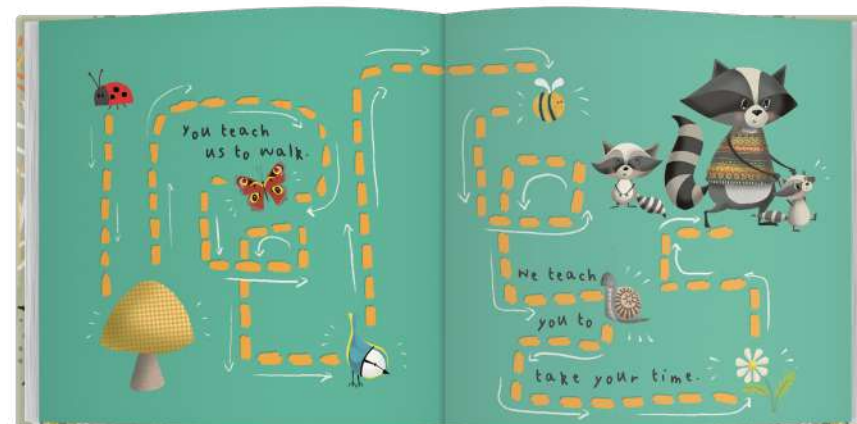 You teach
us to walk.
We teach
you to
take your time.